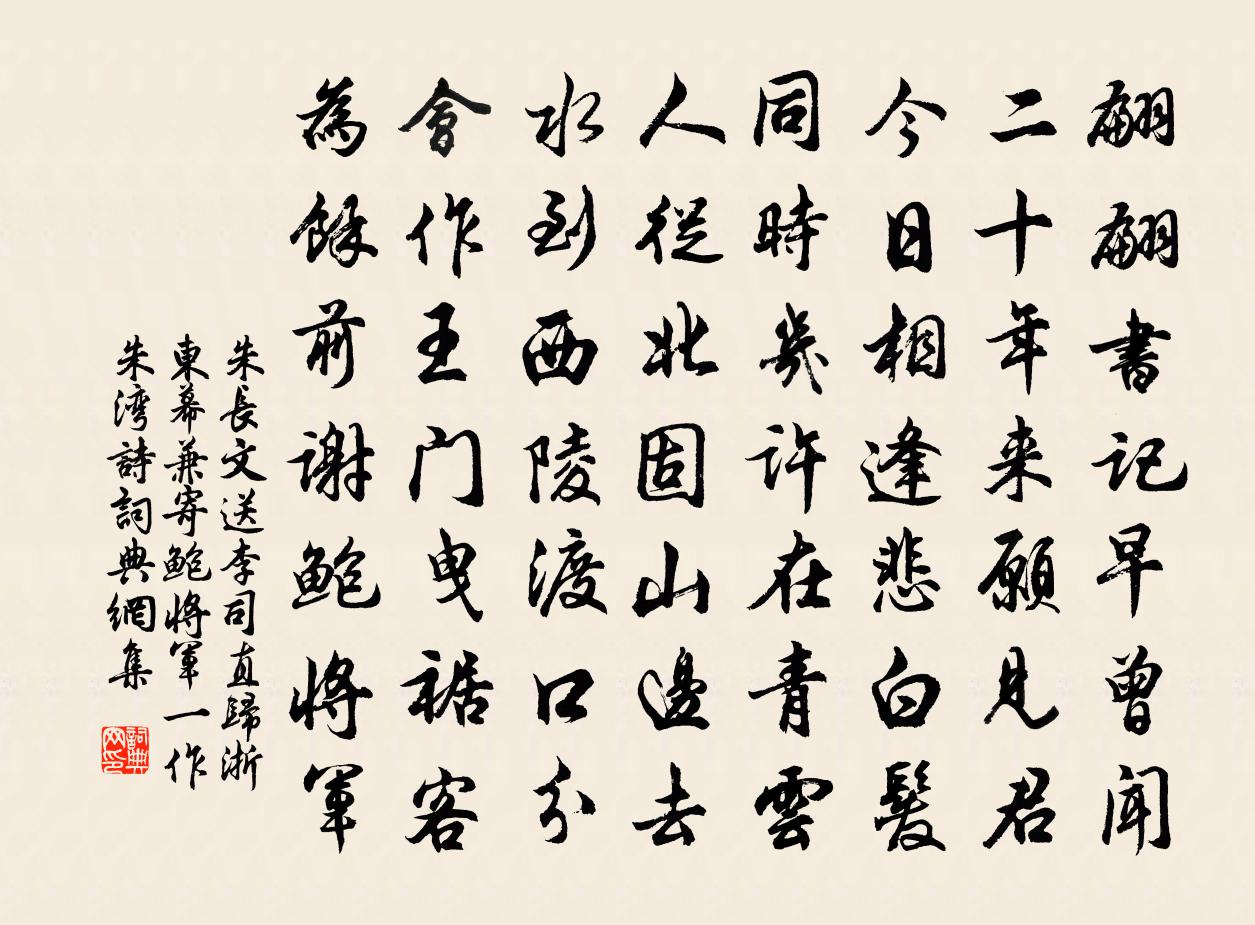 翩翩書記早曾聞
二十年来願見君
今日相逢悲白髮
同時幾許在青雲
人從北固山邊去
水到西陵渡口分
會作王門曳裾客
為餘前謝鮑將軍
朱長文送李司直歸浙
東幕兼寄鮑將軍一作
朱湾詩詞典網集
詞典
网印